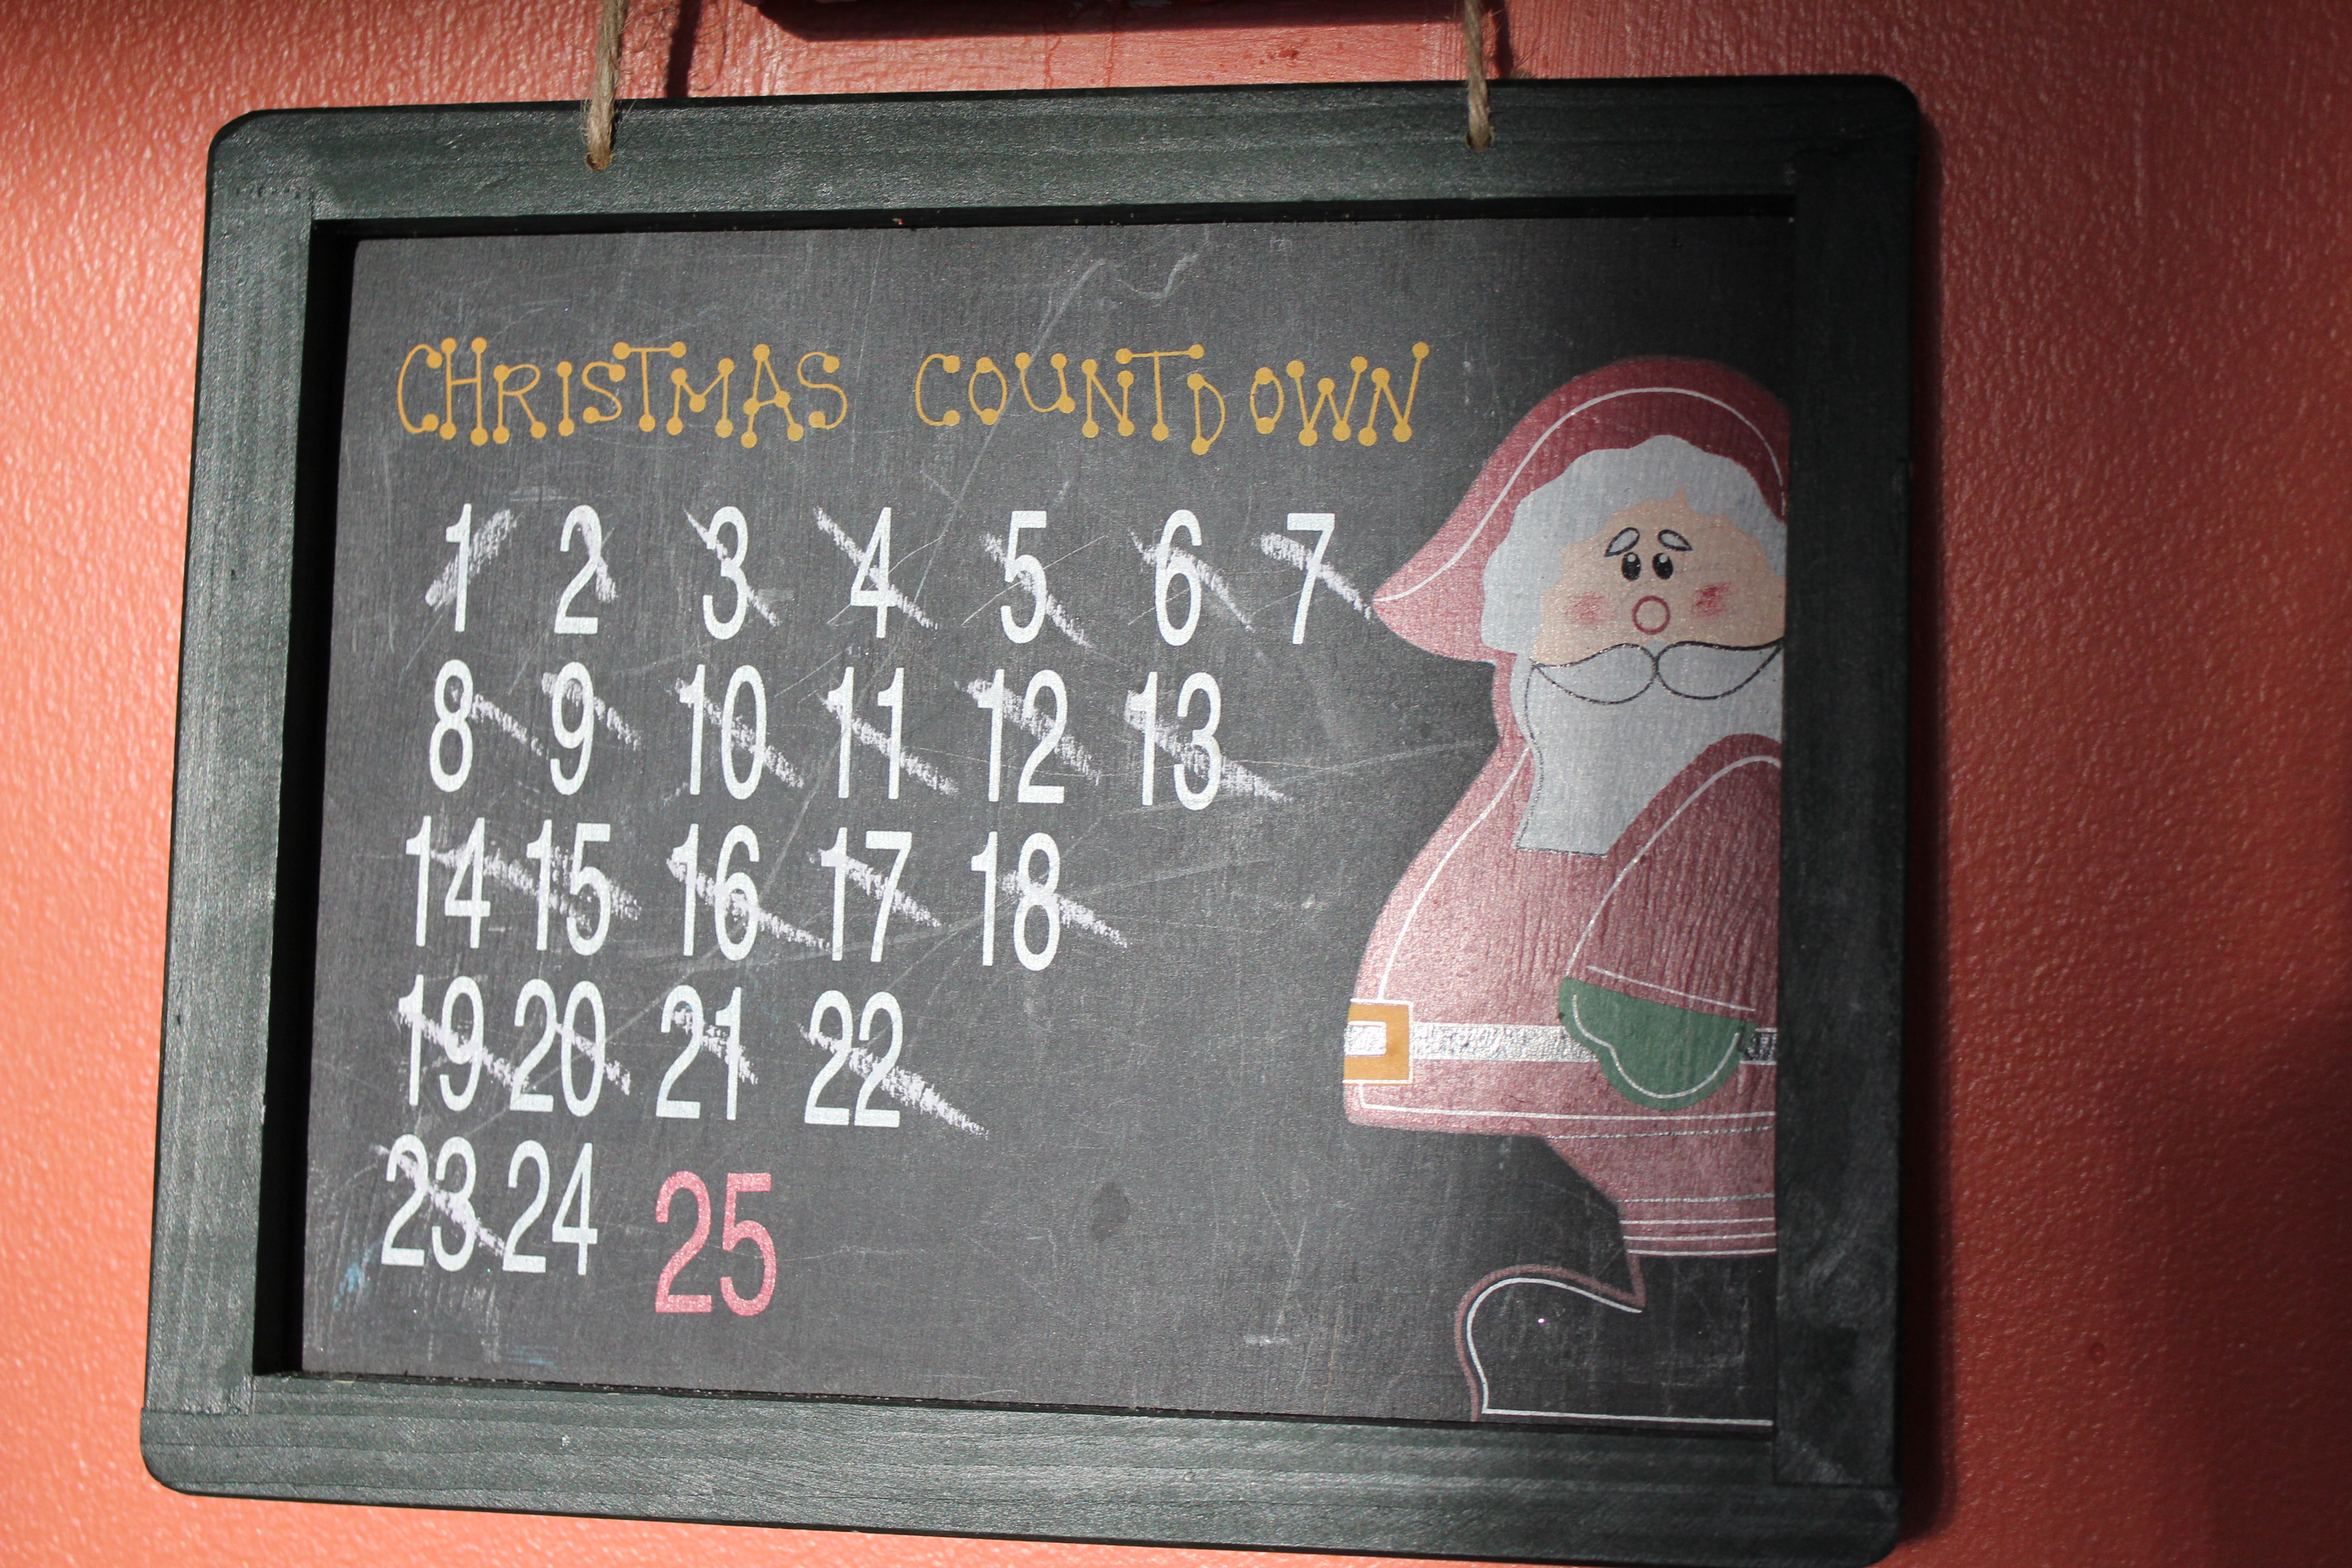 CHRISTMAS COUNTDOWN
1 2 3 4 5 6 7
8 9 10 11 12 13
14 15 16 17 18
19 20 21 22
23 24 25